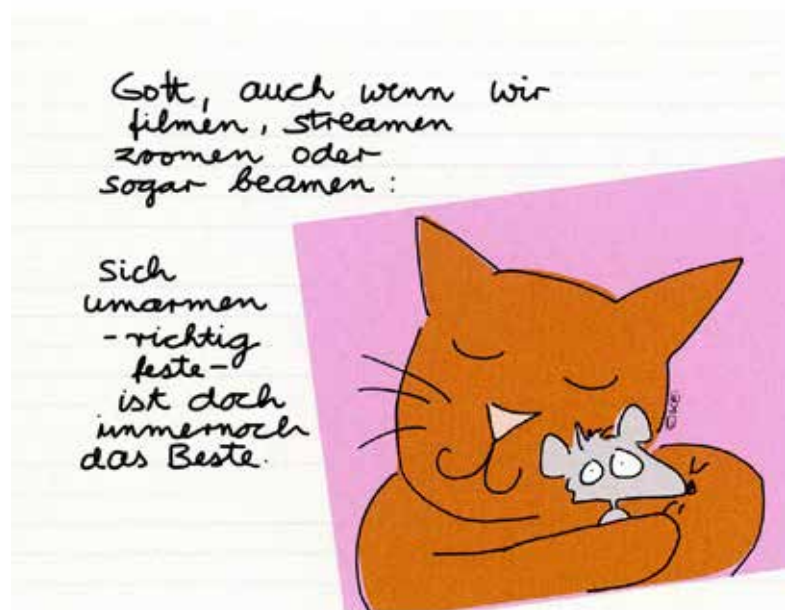 Gott, auch wenn wir
filmen, streamen
zoomen oder
sogar beamen:
Sich
umarmen
-richtig
feste-
ist doch
immernoch
das Beste.